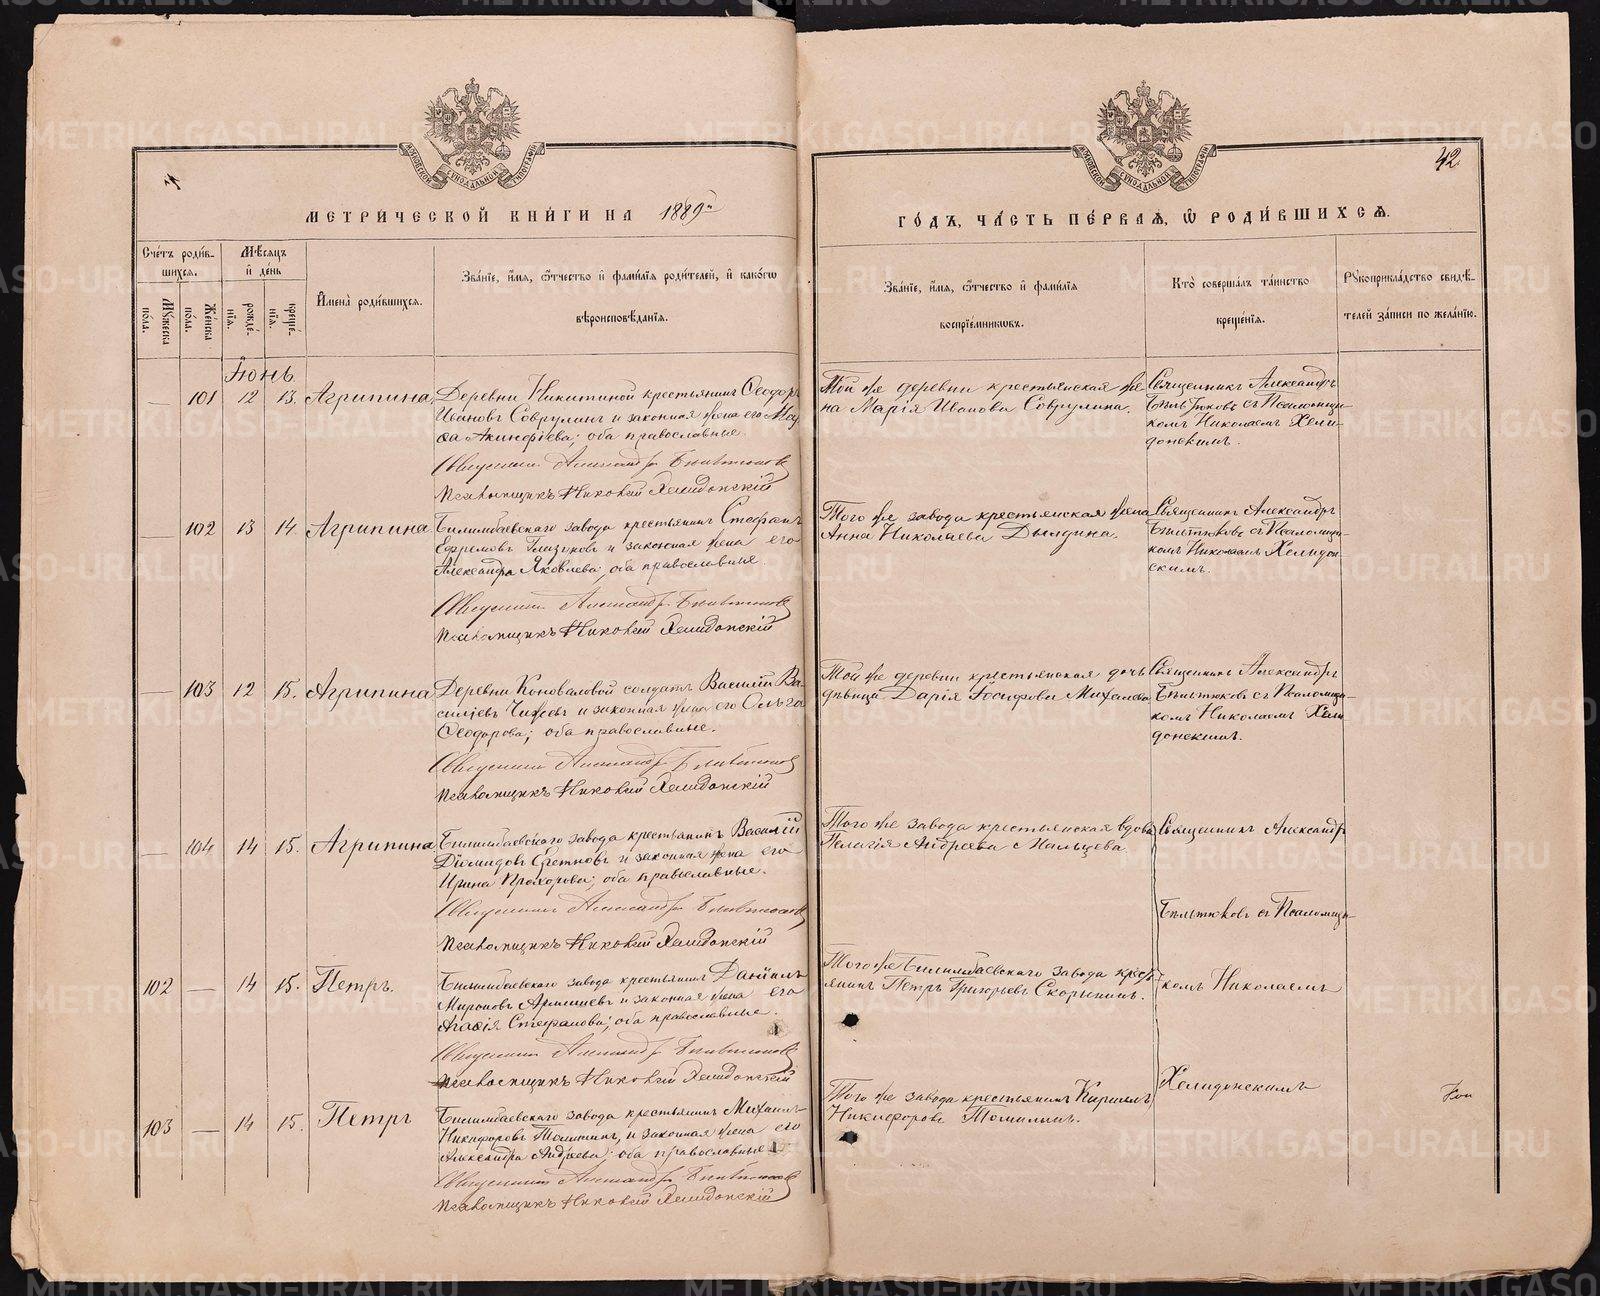 42
МОСКОВСКОЙ СѴНОДАЛЬНОЙ ТИПОГРАФІИ
МОСКОВСКОЙ СѴНОДАЛЬНОЙ ТИПОГРАФІИ
МЕТРИ́ЧЕСКОЙ КНИ́ГИ НА 1889й
ГО́ДЪ, ЧА́СТЬ ПЕ́РВАЯ, Ѽ РОДИ́ВШИХСЯ.
Сче́тъ роди́в-
шихся.
Мѣ́сяцъ
и҆ де́нь
Мꙋ́жеска
по́ла.
Же́нска
по́ла.
рожде́-
нїѧ.
креще́-
нїѧ.
И҆мена̀ роди́вшихся.
Зва́нїе, и҆́мѧ, ѻ҆́тчество и҆ фами́лїѧ роди́телей, и҆ како́гѡ
вѣроисповѣ́данїѧ.
Зва́нїе, и҆́мѧ, ѻ҆́тчество и҆ фами́лїѧ
воспрїе́мникѡвъ.
Кто̀ соверша́лъ та́инство
креще́нїѧ.
Рꙋкоприкла́дство свидѣ́-
телей за́писи по жела́нїю.
Іюнь
— 101 12 13. Агрипина.
Деревни Никитиной крестьянинъ Ѳеодоръ
Ивановъ Соврулинъ и законная жена его
Акинфіева; оба православные.
Священникъ Александръ
Псаломщикъ Николай Хелидонскій
Той же деревни крестьянская же-
на Марія Иванова Соврулина.
Священникъ Александръ
съ Псаломщи-
комъ Николаемъ Хели-
донскимъ.
— 102 13 14. Агрипина
Билимбаевскаго завода крестьянинъ Стефанъ
Ефремовъ и законная жена его
Александра Яковлева; оба православные.
Священникъ Александръ
Псаломщикъ Николай Хелидонскій
Того же завода крестьянская жена
Анна Николаева Дылдина.
Священникъ Александръ
съ Псаломщи-
комъ Николаемъ Хелидон-
скимъ.
— 103 12 15. Агрипина
Деревни Коноваловой солдатъ Василій Ва-
сильевъ и законная жена его Ольга
Ѳеодорова; оба православные.
Священникъ Александръ
Псаломщикъ Николай Хелидонскій
Той же деревни крестьянская дочь
дѣвица Дарія Іосифова Михалева
Священникъ Александръ
съ Псаломщи-
комъ Николаемъ Хели-
донскимъ.
— 104 14 15. Агрипина
Билимбаевскаго завода крестьянинъ Василій
Діомидовъ и законная жена его
Ирина Прохорова; оба православные.
Священникъ Александръ
Псаломщикъ Николай Хелидонскій
Того же завода крестьянская вдова
Пелагія Андреева Мальцева.
Священникъ Александръ
съ Псаломщи-
102 — 14 15. Петръ.
Билимбаевскаго завода крестьянинъ Даніилъ
Мироновъ и законная жена его
Агафія Стефанова; оба православные.
Священникъ Александръ
Псаломщикъ Николай Хелидонскій
Того же Билимбаевскаго завода кресть-
янинъ Петръ Григорьевъ Скорынинъ.
комъ Николаемъ
103 — 14 15. Петръ
Билимбаевскаго завода крестьянинъ Михаилъ
Никифоровъ Томилинъ, и законная жена его
Александра Андреева; оба православные
Священникъ Александръ
Псаломщикъ Николай Хелидонскій
Того же завода крестьянинъ Кириллъ
Никифоровъ Томилинъ.
Хелидонскимъ
METRIKI.GASO-URAL.RU